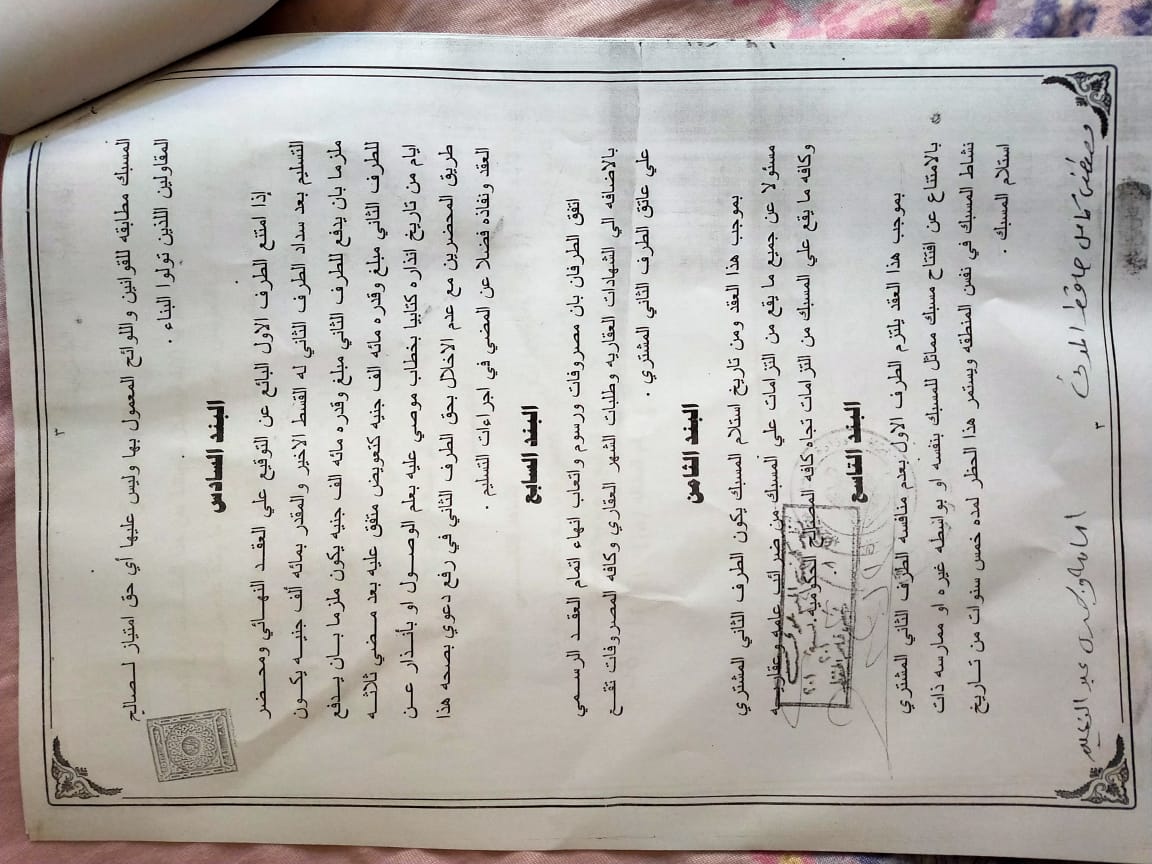 ٣
المسبك مطابقه للقوانين واللوائح المعمول بها وليس عليها أي حق امتياز لصالح
المقاولين اللذين تولوا البناء .
البند السادس
إذا امتنع الطرف الاول البائع عن التوقيع علي العقد النهائي ومحضر
التسليم بعد سداد الطرف الثاني له القسط الاخير والمقدر بمائه ألف جنيه يكون
ملزما بان يدفع للطرف الثاني مبلغ وقدره مائه الف جنيه يكون ملزما بان يدفع
للطرف الثاني مبلغ وقدره مائه الف جنيه كتعويض متفق عليه بعد مضي ثلاثه
ايام من تاريخ انذاره كتابيا بخطاب موصي عليه بعلم الوصول او بأنذار عن
طريق المحضرين مع عدم الاخلال بحق الطرف الثاني في رفع دعوي بصحه هذا
العقد ونفاذه فضلا عن المضي في اجراءات التسليم .
البند السابع
اتفق الطرفان بان مصروفات ورسوم واتعاب انهاء اتمام العقد الرسمي
بالاضافه الي الشهادات العقاريه وطلبات الشهر العقاري وكافه المصروفات تقع
علي عاتق الطرف الثاني المشتري .
البند الثامن
بموجب هذا العقد ومن تاريخ استلام المسبك يكون الطرف الثاني المشتري
مسئولا عن جميع ما يقع من التزامات علي المسبك من ضرائب عامه وعقاريه
وكافه ما يقع علي المسبك من التزامات تجاه كافه المصالح الحكوميه .
البند التاسع
بموجب هذا العقد يلتزم الطرف الاول بعدم منافسه الطرف الثاني المشتري
بالامتناع عن افتتاح مسبك مماثل للمسبك بنفسه او بواسطه غيره او ممارسه ذات
نشاط المسبك في نفس المنطقه ويستمر هذا الحظر لمده خمس سنوات من تاريخ
استلام المسبك .
٣